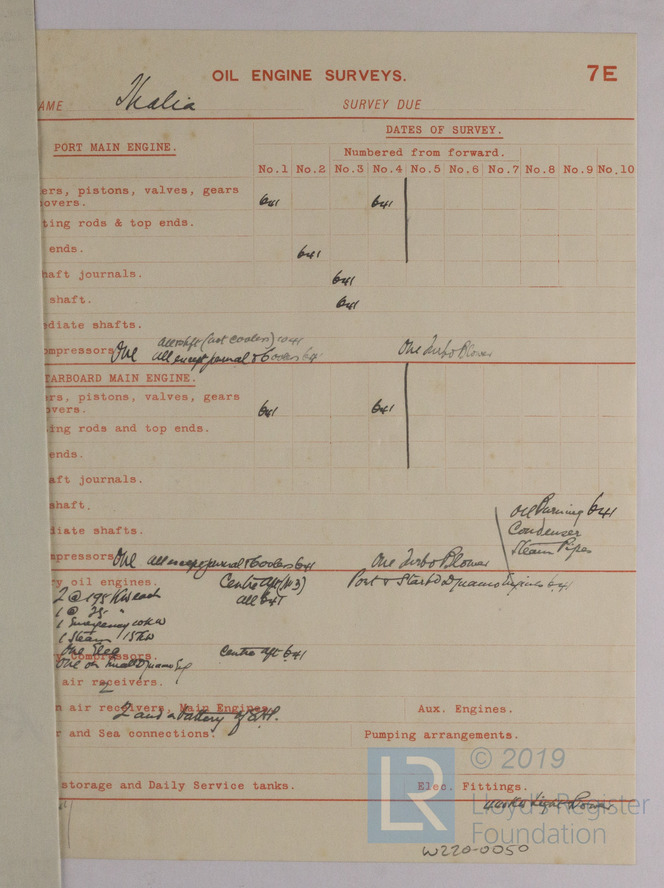 OIL ENGINE SURVEYS. 7E
AME Thalia SURVEY DUE
DATES OF SURVEY.
PORT MAIN ENGINE. Numbered from forward.
No.1 No.2 No.3 No.4 No.5 No.6 No.7 No.8 No.9 No.10
ers, pistons, valves, gears
overs. 6.41 6.41
ting rods & top ends.
ends. 6.41
haft journals. 6.41
shaft. 6.41
diate shafts.
all shft (not coolers) 10.41
ompressors One all except journal & coolers 6.41 One Turbo Blower
TARBOARD MAIN ENGINE.
ers, pistons, valves, gears
overs. 6.41 6.41
ing rods and top ends.
ends.
aft journals.
shaft. Oil Burning 6.41
Condenser
diate shafts. Steam Pipes
mpressors One all except journal & coolers 6.41 One Turbo Blower
ry oil engines. Centre aft (No 3) Port & Starbd Dynamo Engines 6.41
2 @ 198 KW each all 6.41
1 @ 75 "
1 Emergency 10 KW
1 Steam 15 KW
y compressors. One Elec Centre aft 6.41
One on small Dynamo Eng
air receivers. 2
n air receivers, Main Engines. Aux. Engines.
2 and a battery of
r and Sea connections. Pumping arrangements.
storage and Daily Service tanks. Elec. Fittings.
Light Power
© 2019
LR Lloyd's Register
Foundation
W220-0050